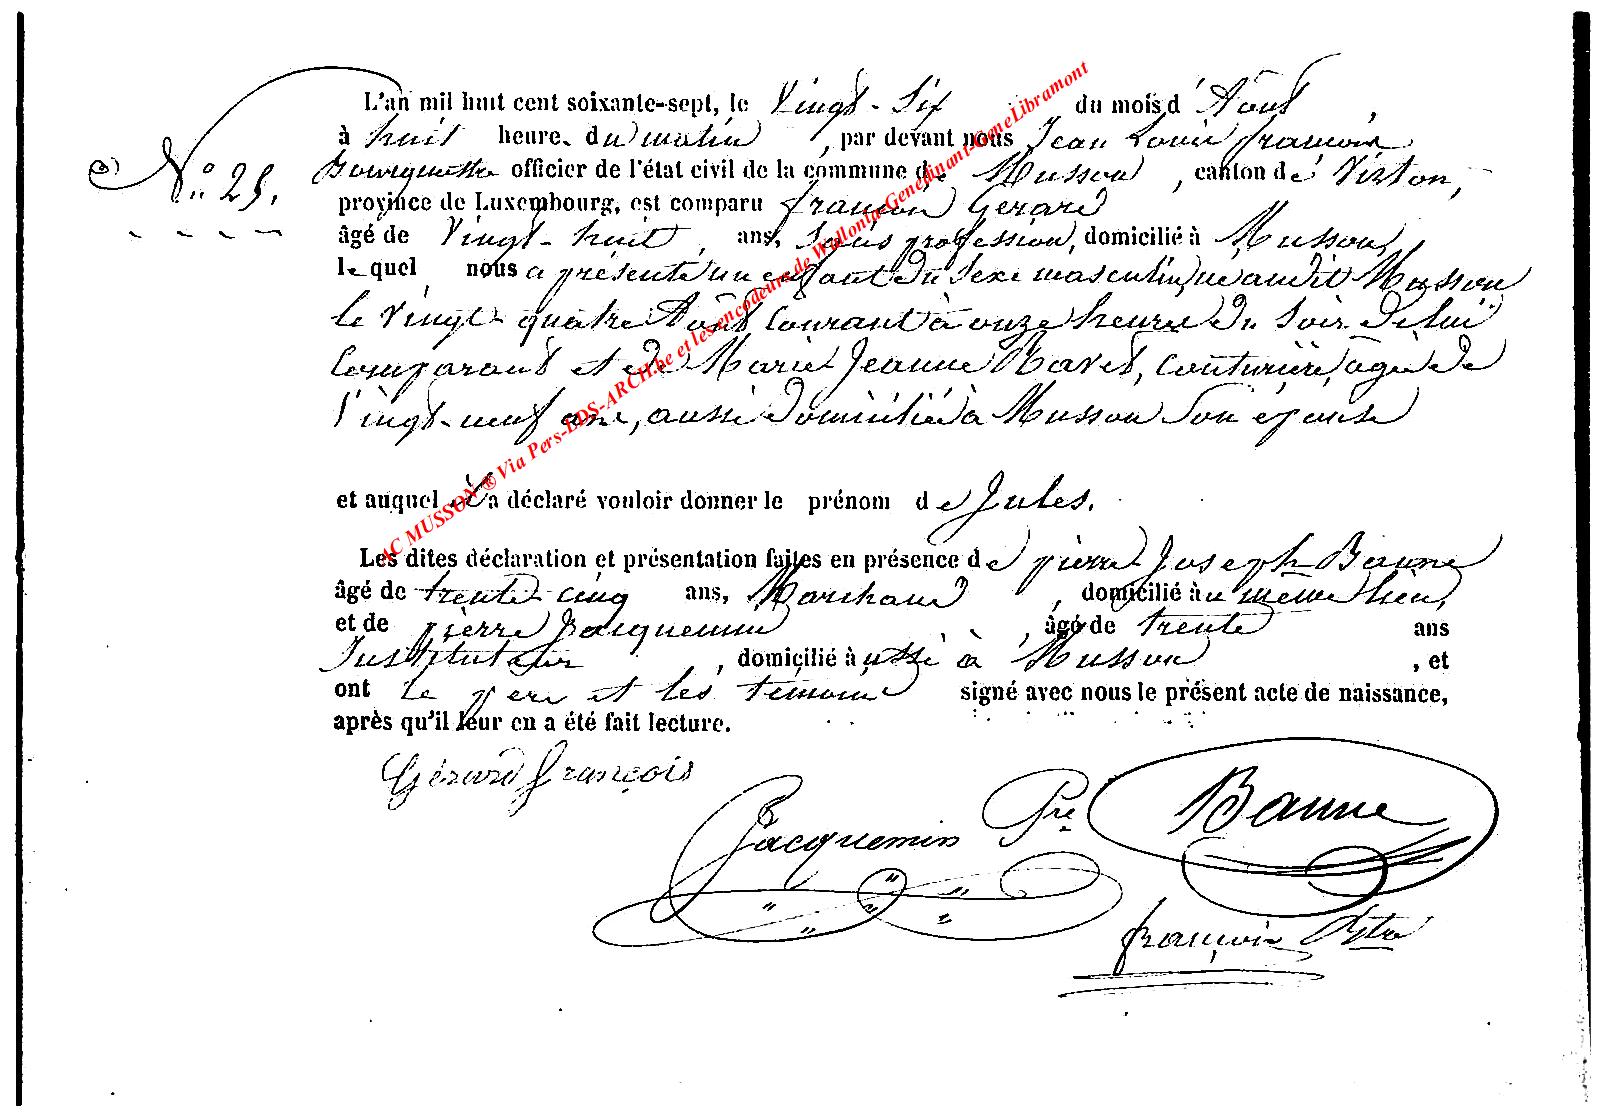 L'an mil huit cent soixante-sept, le Vingt-Six du mois d'Août,
à huit heure. du matin, par devant nous Jean Louis françois
N.° 25. officier de l'état civil de la commune de Musson, canton de Virton,
province de Luxembourg, est comparu françois Gérard
âgé de Vingt-huit, ans, sans profession, domicilié à Musson,
le quel nous a présenté un enfant du sexe masculin, né audit Musson
le Vingt-quatre Août Courant à onze heures du Soir de lui
Comparant et de Marie Jeanne Mavet, Couturière, agée de
Vingt-neuf ans, aussi domiciliée à Musson Son épouse
et auquel il a déclaré vouloir donner le prénom de Jules.
Les dites déclaration et présentation faites en présence de pierre Joseph Banne
âgé de trente cinq ans, Marchand, domicilié au même lieu,
et de pierre Jacquemin, âgé de trente ans
Instituteur, domicilié aussi à Musson, et
ont le père et les témoins signé avec nous le présent acte de naissance,
après qu'il leur en a été fait lecture.
Gérard François
Jacquemin Pre
Banne
françois
AC MUSSON ® Via Pers-BDS-ARCH.be et les encodeurs de Wallonia-Genedinant-GeneLibramont